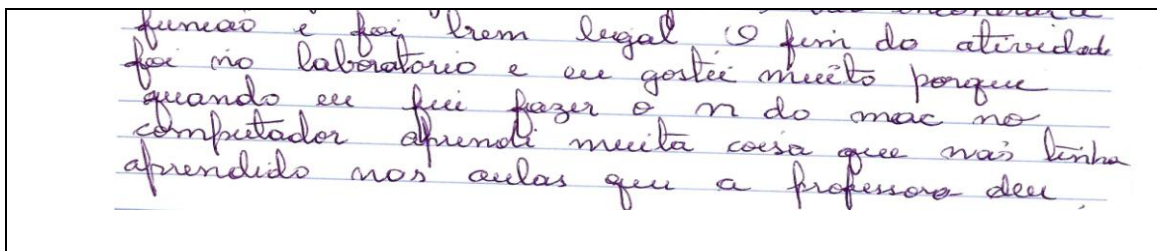 funcao e foi bem legal O fim do atividade
foi no laboratorio e eu gostei muito porque
quando eu fui fazer o m do mac no
computador aprendi muita coisa que não tinha
aprendido nos aulas que a professora deu.